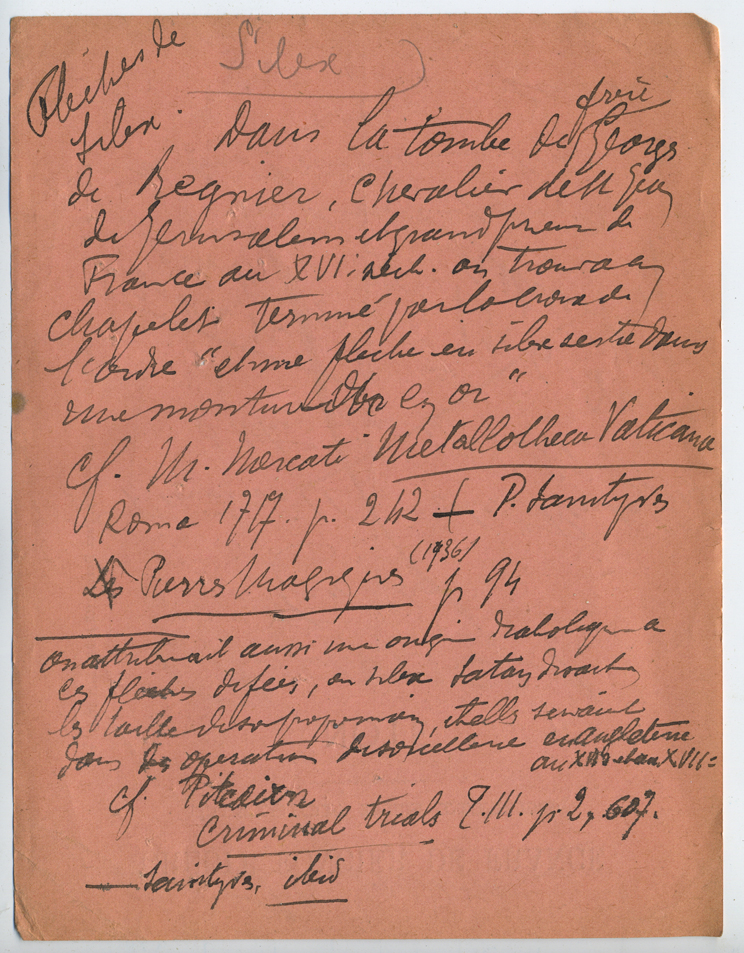 Silex
Flèches de
silex.
frère
Dans la tombe de Georges
de Regnier, chevalier de St Jean
de Jerusalem et grand prieur de
France au XVI: siècle. on trouva un
chapelet terminé par la croix de
l'ordre "et une flèche en silex sertie dans
une monture en or"
cf. M. Mercati Metallotheca Vaticana
Roma 1717. p. 242 — P. Saintyves
Pierres Magiques (1936) p 94
on attribuait aussi une origine diabolique a
ces flèches de fées, en silex Satan
les taille de sa propre main, et elles servaient
dans operation de sorcellerie en angleterre
au et au XVII=
cf. Pitcairn
Criminal trials T.III. p. 2, 607.
— Saintyves, ibid